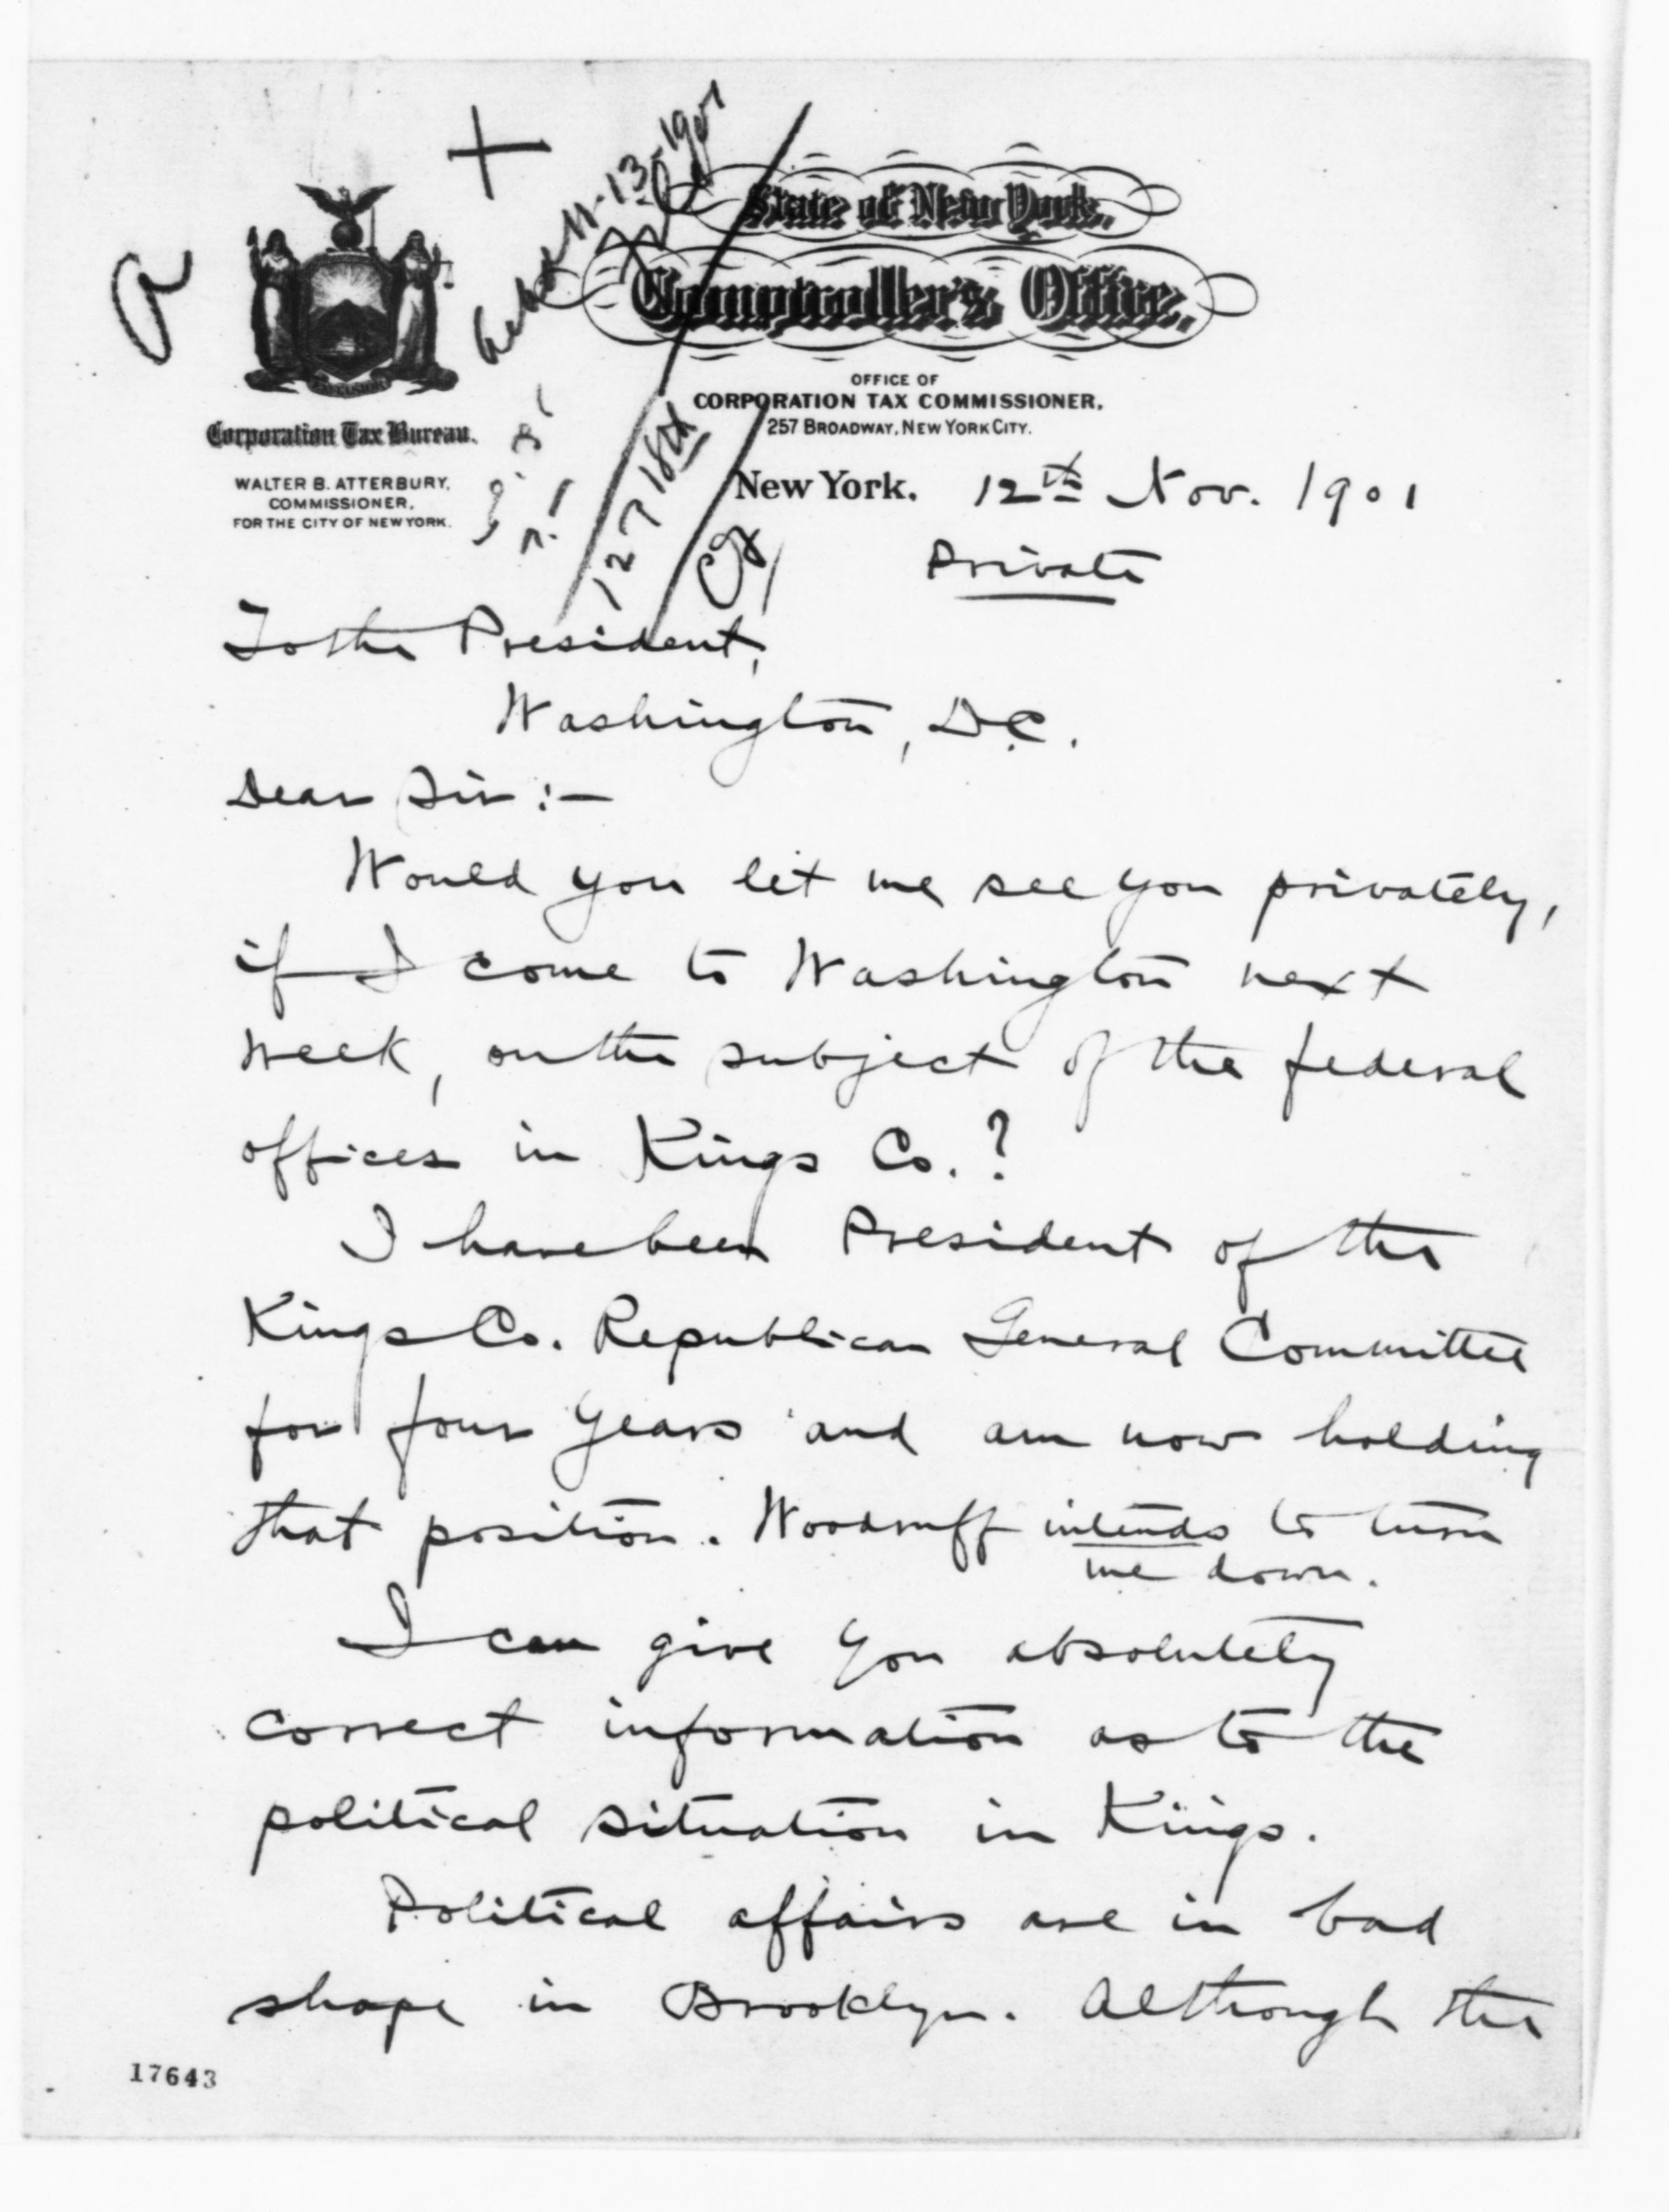 State of New York,
Comptroller's Office.
OFFICE OF
CORPORATION TAX COMMISSIONER,
257 BROADWAY, NEW YORK CITY.
Corporation Tax Bureau.
WALTER B. ATTERBURY,
COMMISSIONER,
FOR THE CITY OF NEW YORK.
11-13-1901
New York. 12th Nov. 1901
Private
To the President,
Washington, D.C.
Dear Sir :-
Would you let me see you privately,
if I come to Washington next
week, on the subject of the federal
offices in Kings Co.?
I have been President of the
Kings Co. Republican General Committee
for four years and am now holding
that position. Woodruff intends to turn
me down.
I can give you absolutely
correct information as to the
political situation in Kings.
Political affairs are in bad
shape in Brooklyn. Although the
17643